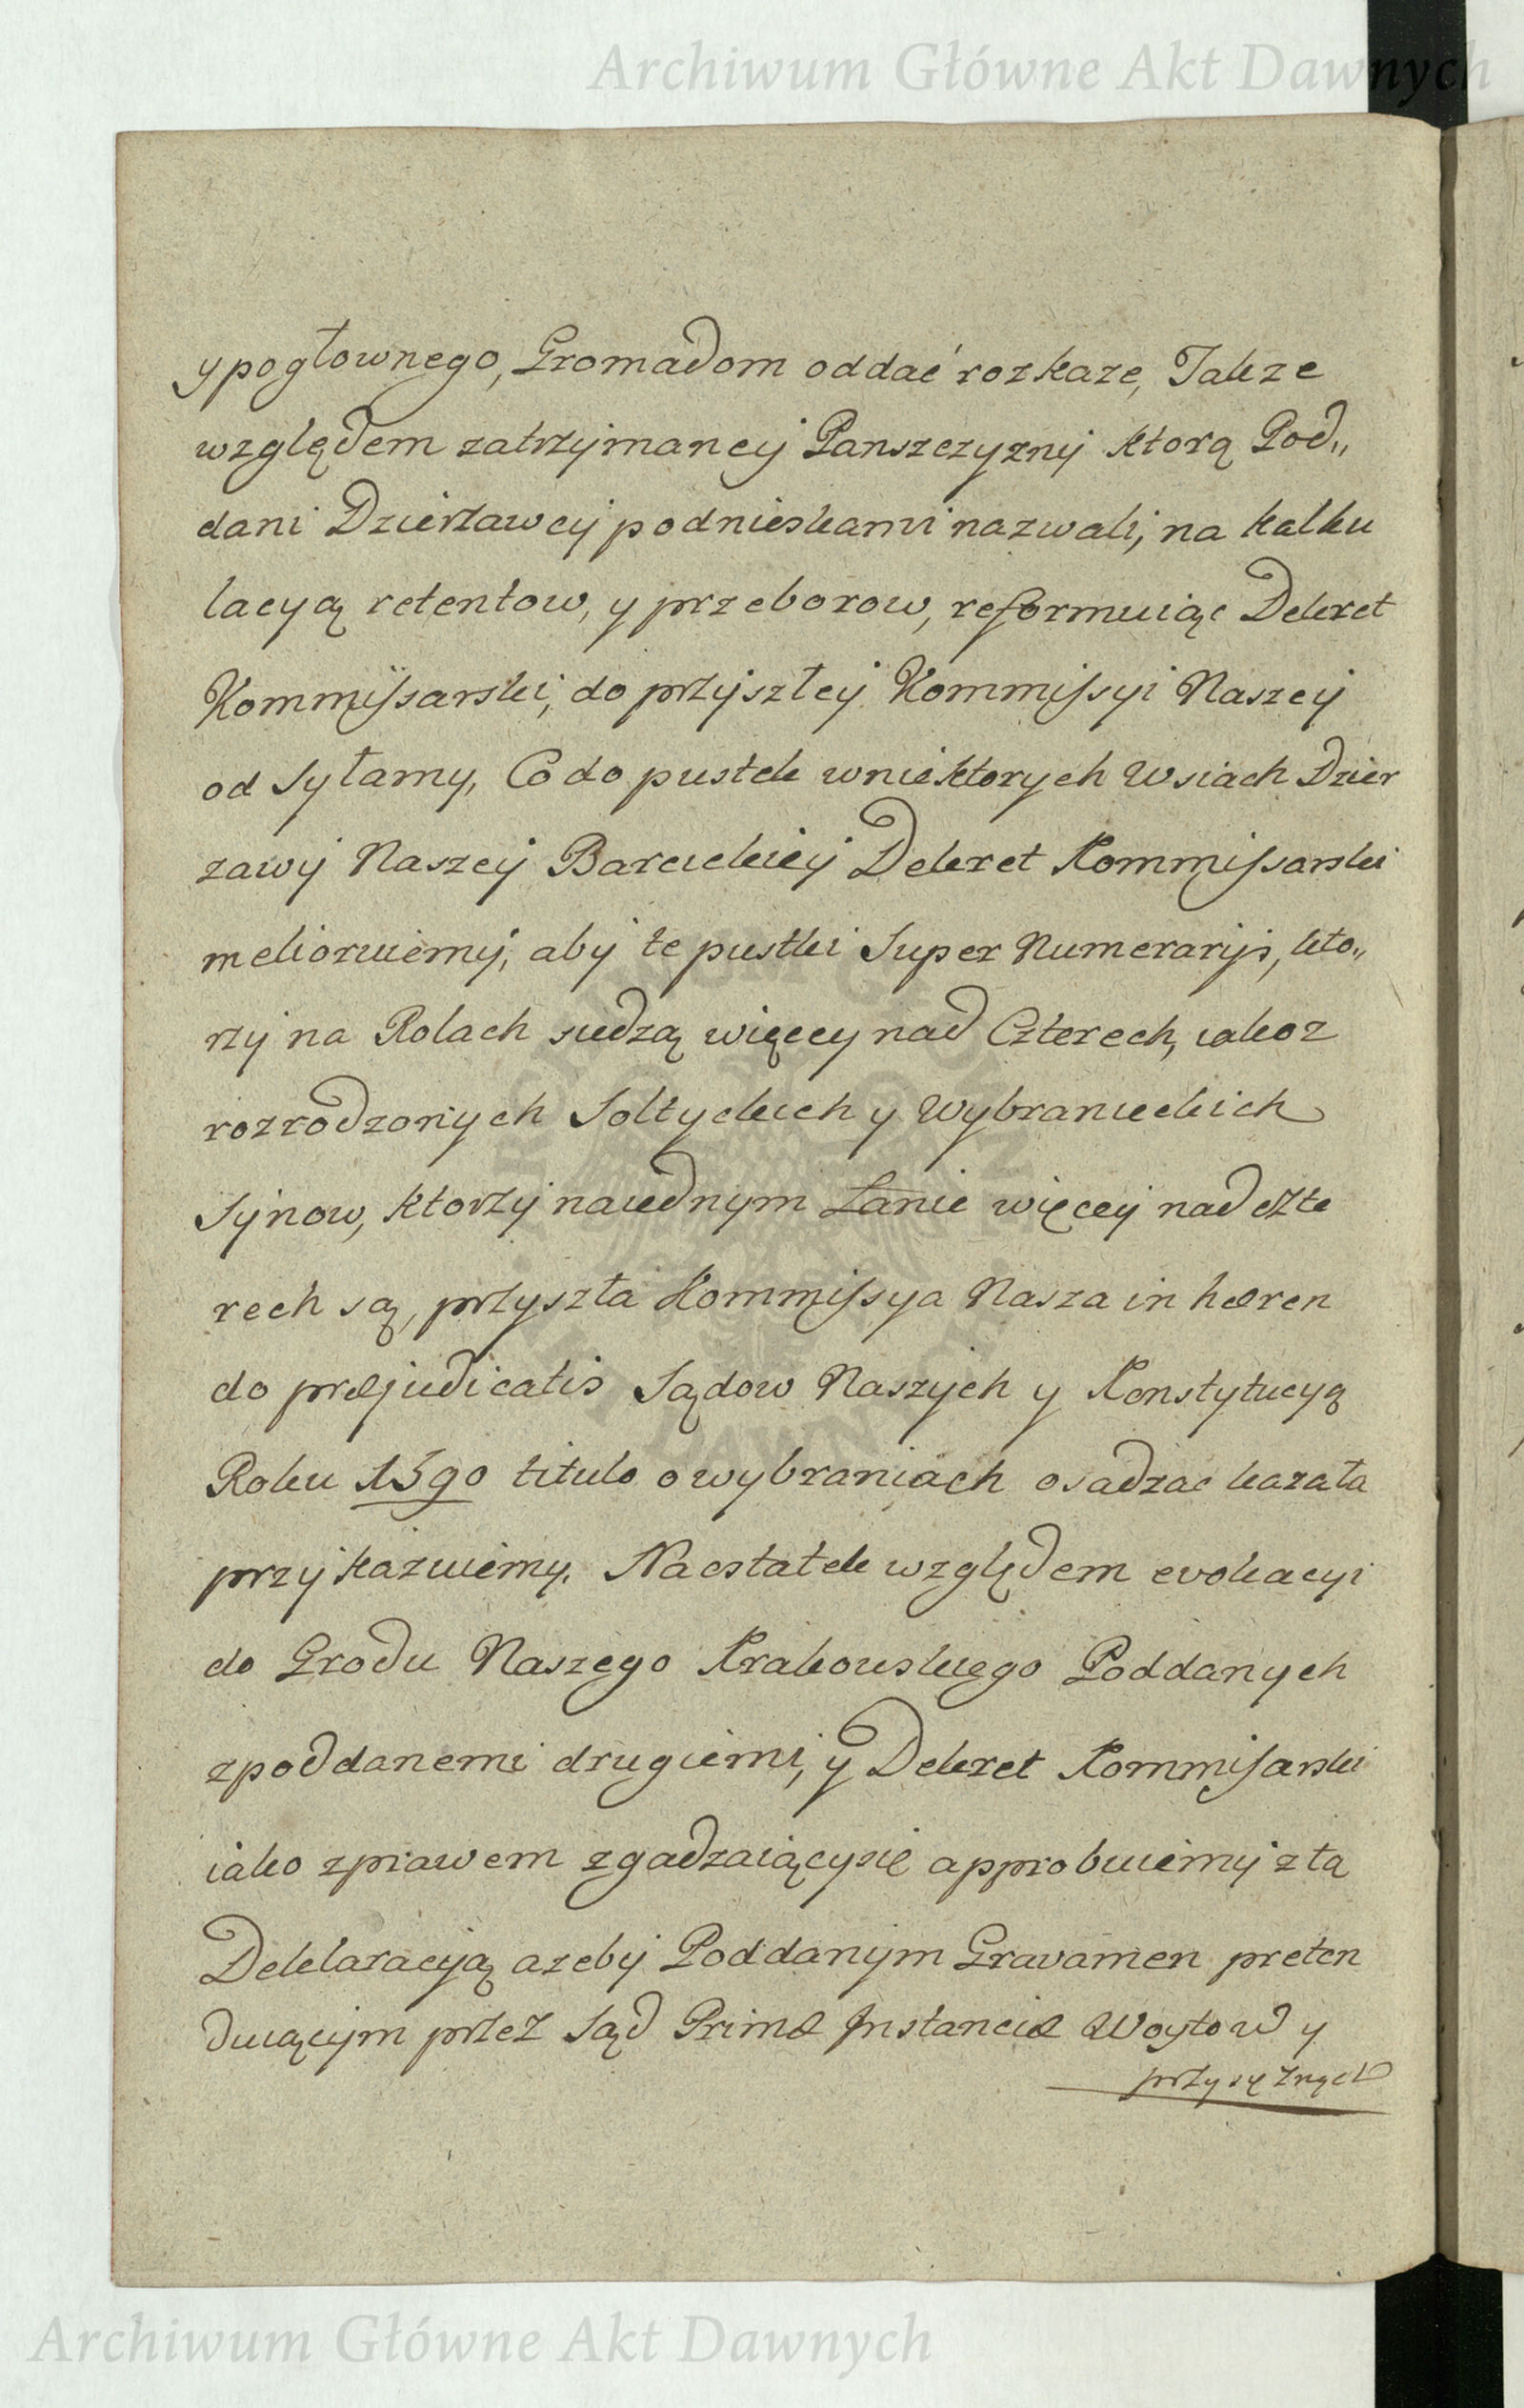 Archiwum Główne Akt Dawnych
y pogłownego, Gromadom oddać rozkaze, Takze
względem zatrzymaney Panszczyzny ktorą Pod„
dani Dzierzawcy podnieskami nazwali, na kalku
lacyą retentow, y przeborow, reformuiąc Dekret
Kommissarski, do przyszłey Kommissyi Naszey
od syłamy, Co do pustek wniektorych Wsiach Dzier
zawy Naszey Barcickiey Dekret Kommissarski
melioruiemy, aby te pustki Super Numerarijs, kto„
rzy na Rolach siedzą więcey nad Czterech, iakoz
rozrodzonych Soltyckich y Wybranieckich
Synow, ktorzy naiednym Łanie więcey nad czte
rech są, przyszła Kommissya Nasza in hæren
do præjudicatis Sądow Naszych y Konstytucyą
Roku 1590 titulo o wybraniach osadzac kazała
przykazuiemy. Naostatek względem evokacyi
do Grodu Naszego Krakowskiego Poddanych
zpoddanemi drugiemi, y Dekret Kommissarski
iako zprawem zgadzaiącysię approbuiemy z tą
Deklaracyią azeby Poddanym Gravamen preten
duiącym przez Sąd Primæ Instanciæ Woytow y
przysięznych
Archiwum Główne Akt Dawnych